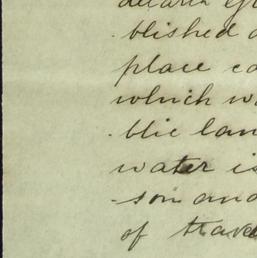 blished
place
which
blic lan
water is
son and
of trave